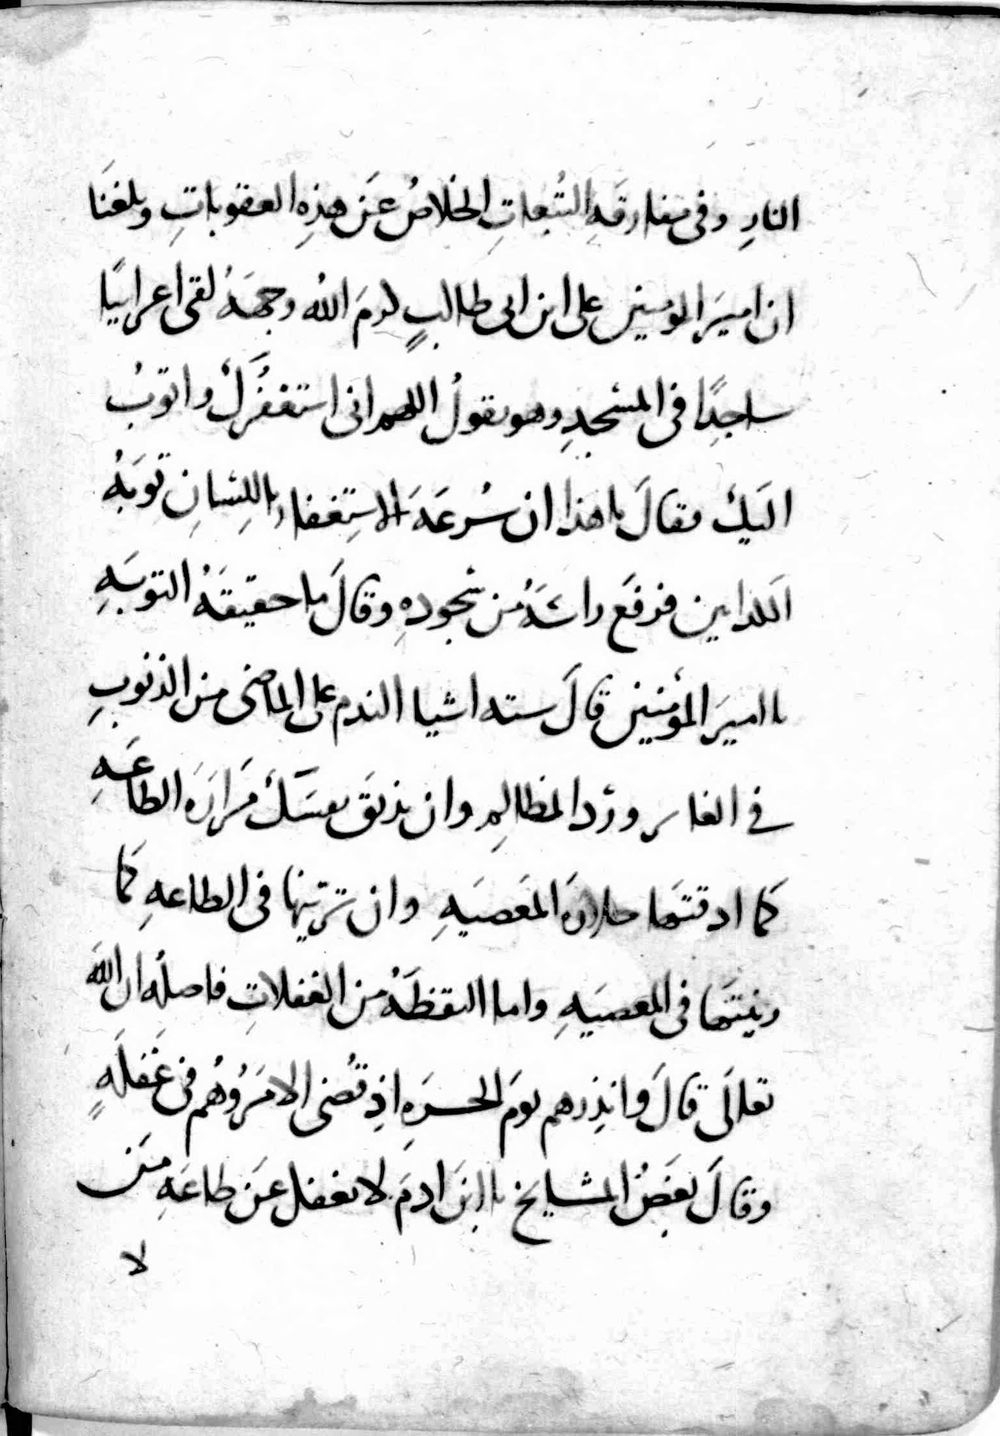 النارِ وفى مفارقَهِ التَّبعاتِ الخلاصُ عَن هذِهِ العقوباتِ وبلغنَا
ان اميرَ المؤمنين على ابن ابى طالبٍ كرمَ اللهُ وجهَهُ لقى اعرابيًا
ساجِدًا فى المسْجدِ وهو يقولُ اللهم انى استغفرُكَ واتوبُ
اليكَ فقالَ يا هذا ان سُرعَهَ الاستِغفار باللِسَانِ توبَهُ
الكذابين فرفَع راسَهُ من سُجودِهِ وقالَ ما حقيقَهُ التوبَهِ
يا اميرَ المؤمنين قالَ سته اشيا الندم على الماضى من الذنوبِ
فى الغابر وردّ المظالِم وان تذيق نفسَكَ مَرارَهَ الطاعَهِ
كَما اذقتَها حلاوَهَ المَعصيَهِ وان تربّيها فى الطاعهِ كَما
ربيتَها فى المعصيَهِ واما اليقظَهُ من الغفلاتِ فاصلُه ان اللهَ
تعالَى قالَ وانذِرهم يومَ الحسرَهِ اذِ قُضى الامَرُ وهُم فى غَفلَهٍ
وقالَ بَعضُ المشايخ يا ابنَ ادمَ لا تغفل عَن طاعَهِ مَن
لا